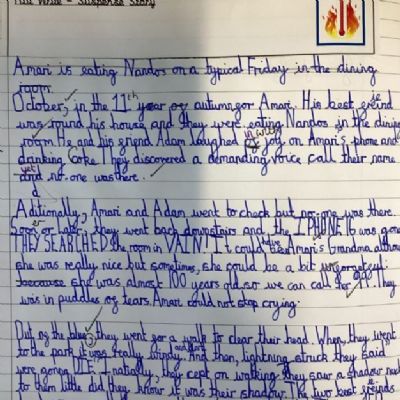 Amari is eating Nandos on a typical Friday in the dining
room.
October, in the 11th year of autumn for Amari. His best freind
was round his house, and they were eating Nandos in the dining
room. He and his friend Adam laughed joy on Amari's phone and
drinking Coke. They discovered a demanding voice call their name
yet no-one was there.
Aditionally, Amari and Adam went to check but no-one was there.
Sooner or later, they went back downstairs and the IPHONE 16 was gone
THEY SEARCHED the room in VAIN! It could have Amari's Grandma, althou
she was really nice but sometimes, she could be a bit
because she was almost 100 years old, so we can call for 99. They
was in puddles of tears. Amari could not stop crying.
Out of the blue, they went for a walk to clear their head. When they went
to the park it was really windy. And then, lightning struck they said
were gonna DIE. Innatially, they cept on walking they saw a shadow next
to them little did they know it was their shadow. The two best